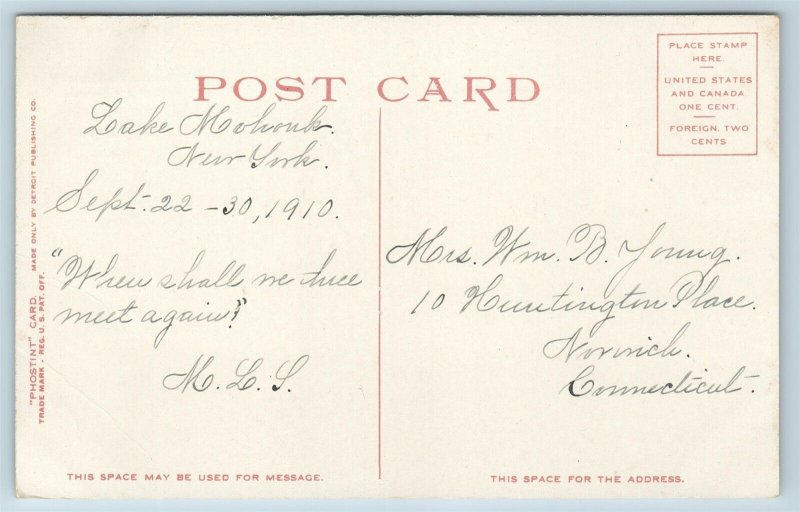 POST CARD
PLACE STAMP
HERE.
UNITED STATES
AND CANADA
ONE CENT.
FOREIGN, TWO
CENTS
Lake Mohonk.
New York.
Sept. 22 - 30, 1910.
"When shall we three
meet again?"
M. L. S.
Mrs. Wm. B. Young.
10 Huntington Place.
Norwich.
Connecticut.
THIS SPACE MAY BE USED FOR MESSAGE.
THIS SPACE FOR THE ADDRESS.
"PHOSTINT" CARD. MADE ONLY BY DETROIT PUBLISHING CO.
TRADE MARK - REG. U. S. PAT. OFF.